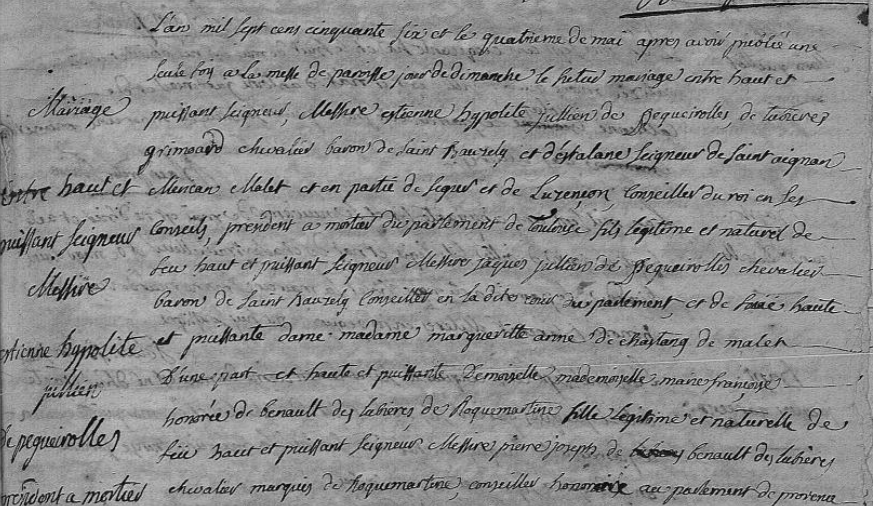 L'an mil sept cens cinquante six et le quatrieme de mai apres avoir publié une
seule fois a la messe de paroisse jour de dimanche le futur mariage entre haut et
Mariage
puissant seigneur, Messire estienne hypolite jullien de Pegueirolles, de lubieres
grimoard chevalier baron de Saint Bauzely et d'estalane seigneur de Saint aignan
entre haut et
Malet et en partie de Segur et de Luzençon, Conseiller du roi en ses
puissant seigneur
Conseils, president a mortier du parlement de Toulouse fils legitime et naturel de
feu haut et puissant seigneur Messire jaques jullien de Pegueirolles chevalier
Messire
baron de Saint Bauzely Conseiller en la dite cour du parlement, et de haute
estienne hypolite
et puissante dame madame margueritte anne de chastang de malet
jullien
D'une part et haute et puissante Demoiselle mademoiselle marie françoise
honorée de benault des lubières de Roquemartine fille legitime et naturelle de
de pegueirolles
feu haut et puissant seigneur Messire pierre joseph de benault des lubieres
president a mortier
chevalier marquis de Roquemartine, conseiller honoraire au parlement de provence